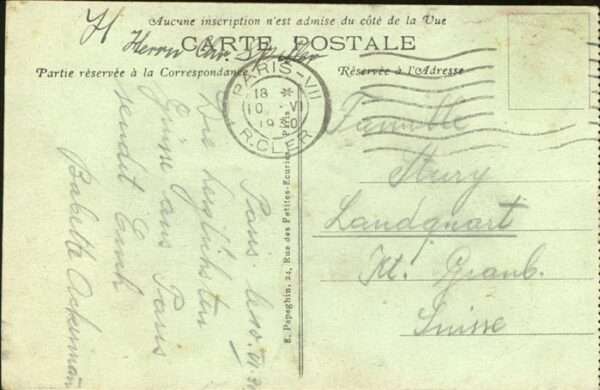 Aucune inscription n'est admise du côté de la Vue
H
Herrn Chr.
CARTE POSTALE
Partie réservée à la Correspondance
Réservée à l'Adresse
PARIS-VII
18 *
10 VI
1930
R. CLER
Paris le 10. VI. 30
Die herzlichsten
Grüsse aus Paris
sendet Euch
Babette Ackermann
E. Papeghin, 24, Rue des Petites-Ecuries, Paris
Familie
Landquart
Kt. Graub.
Suisse